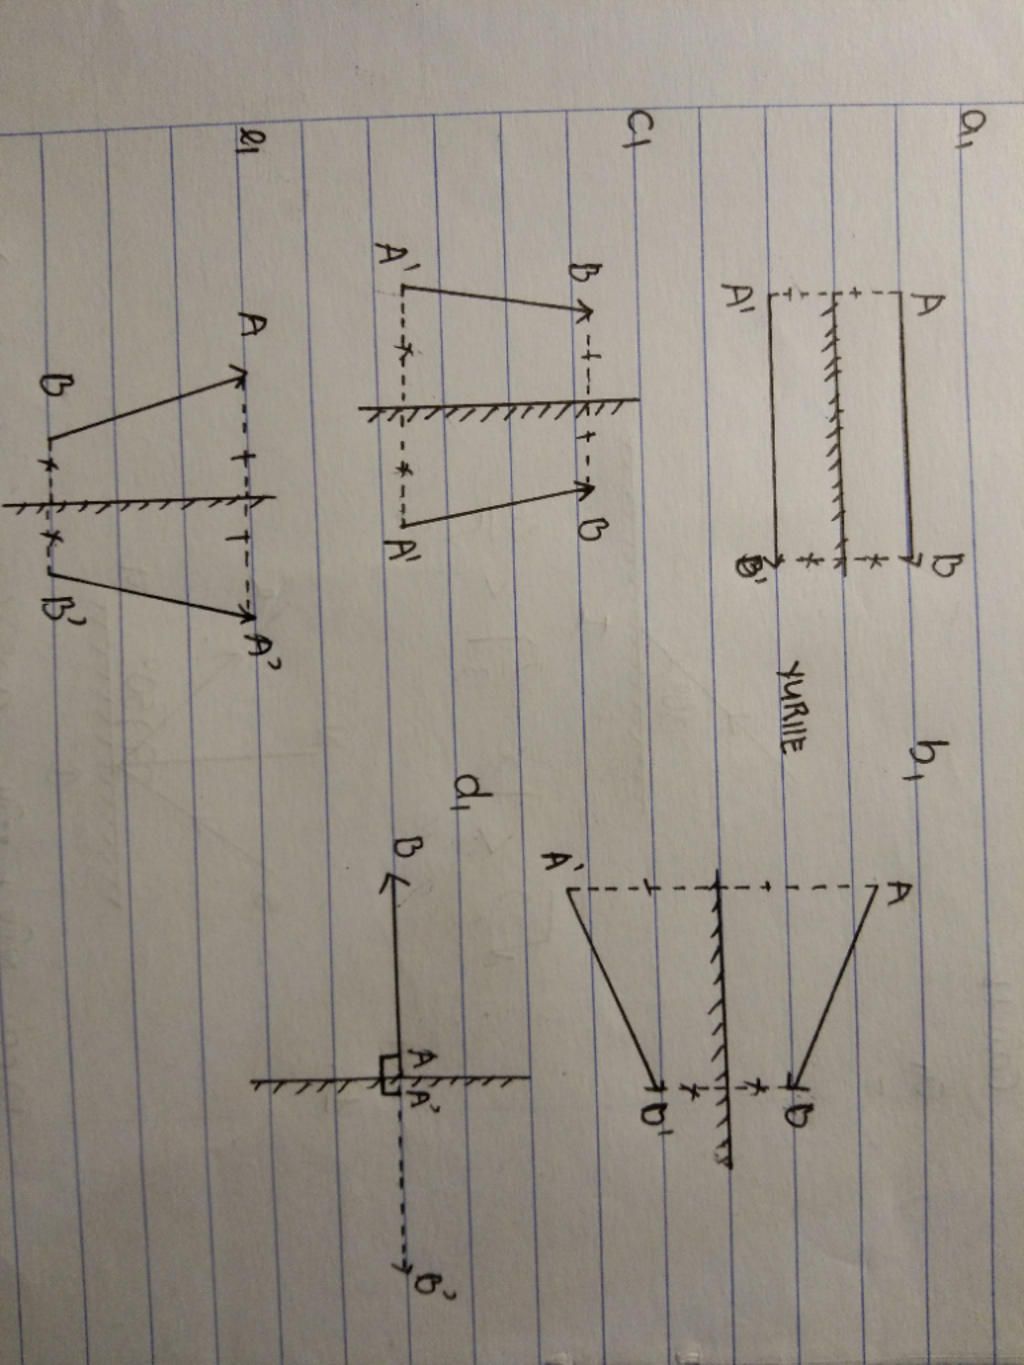 a,
A B
A' B'
YURIIE
b,
A
B
A'
B'
c,
B B
A' A'
d,
B A A' B'
e,
A A'
B B'